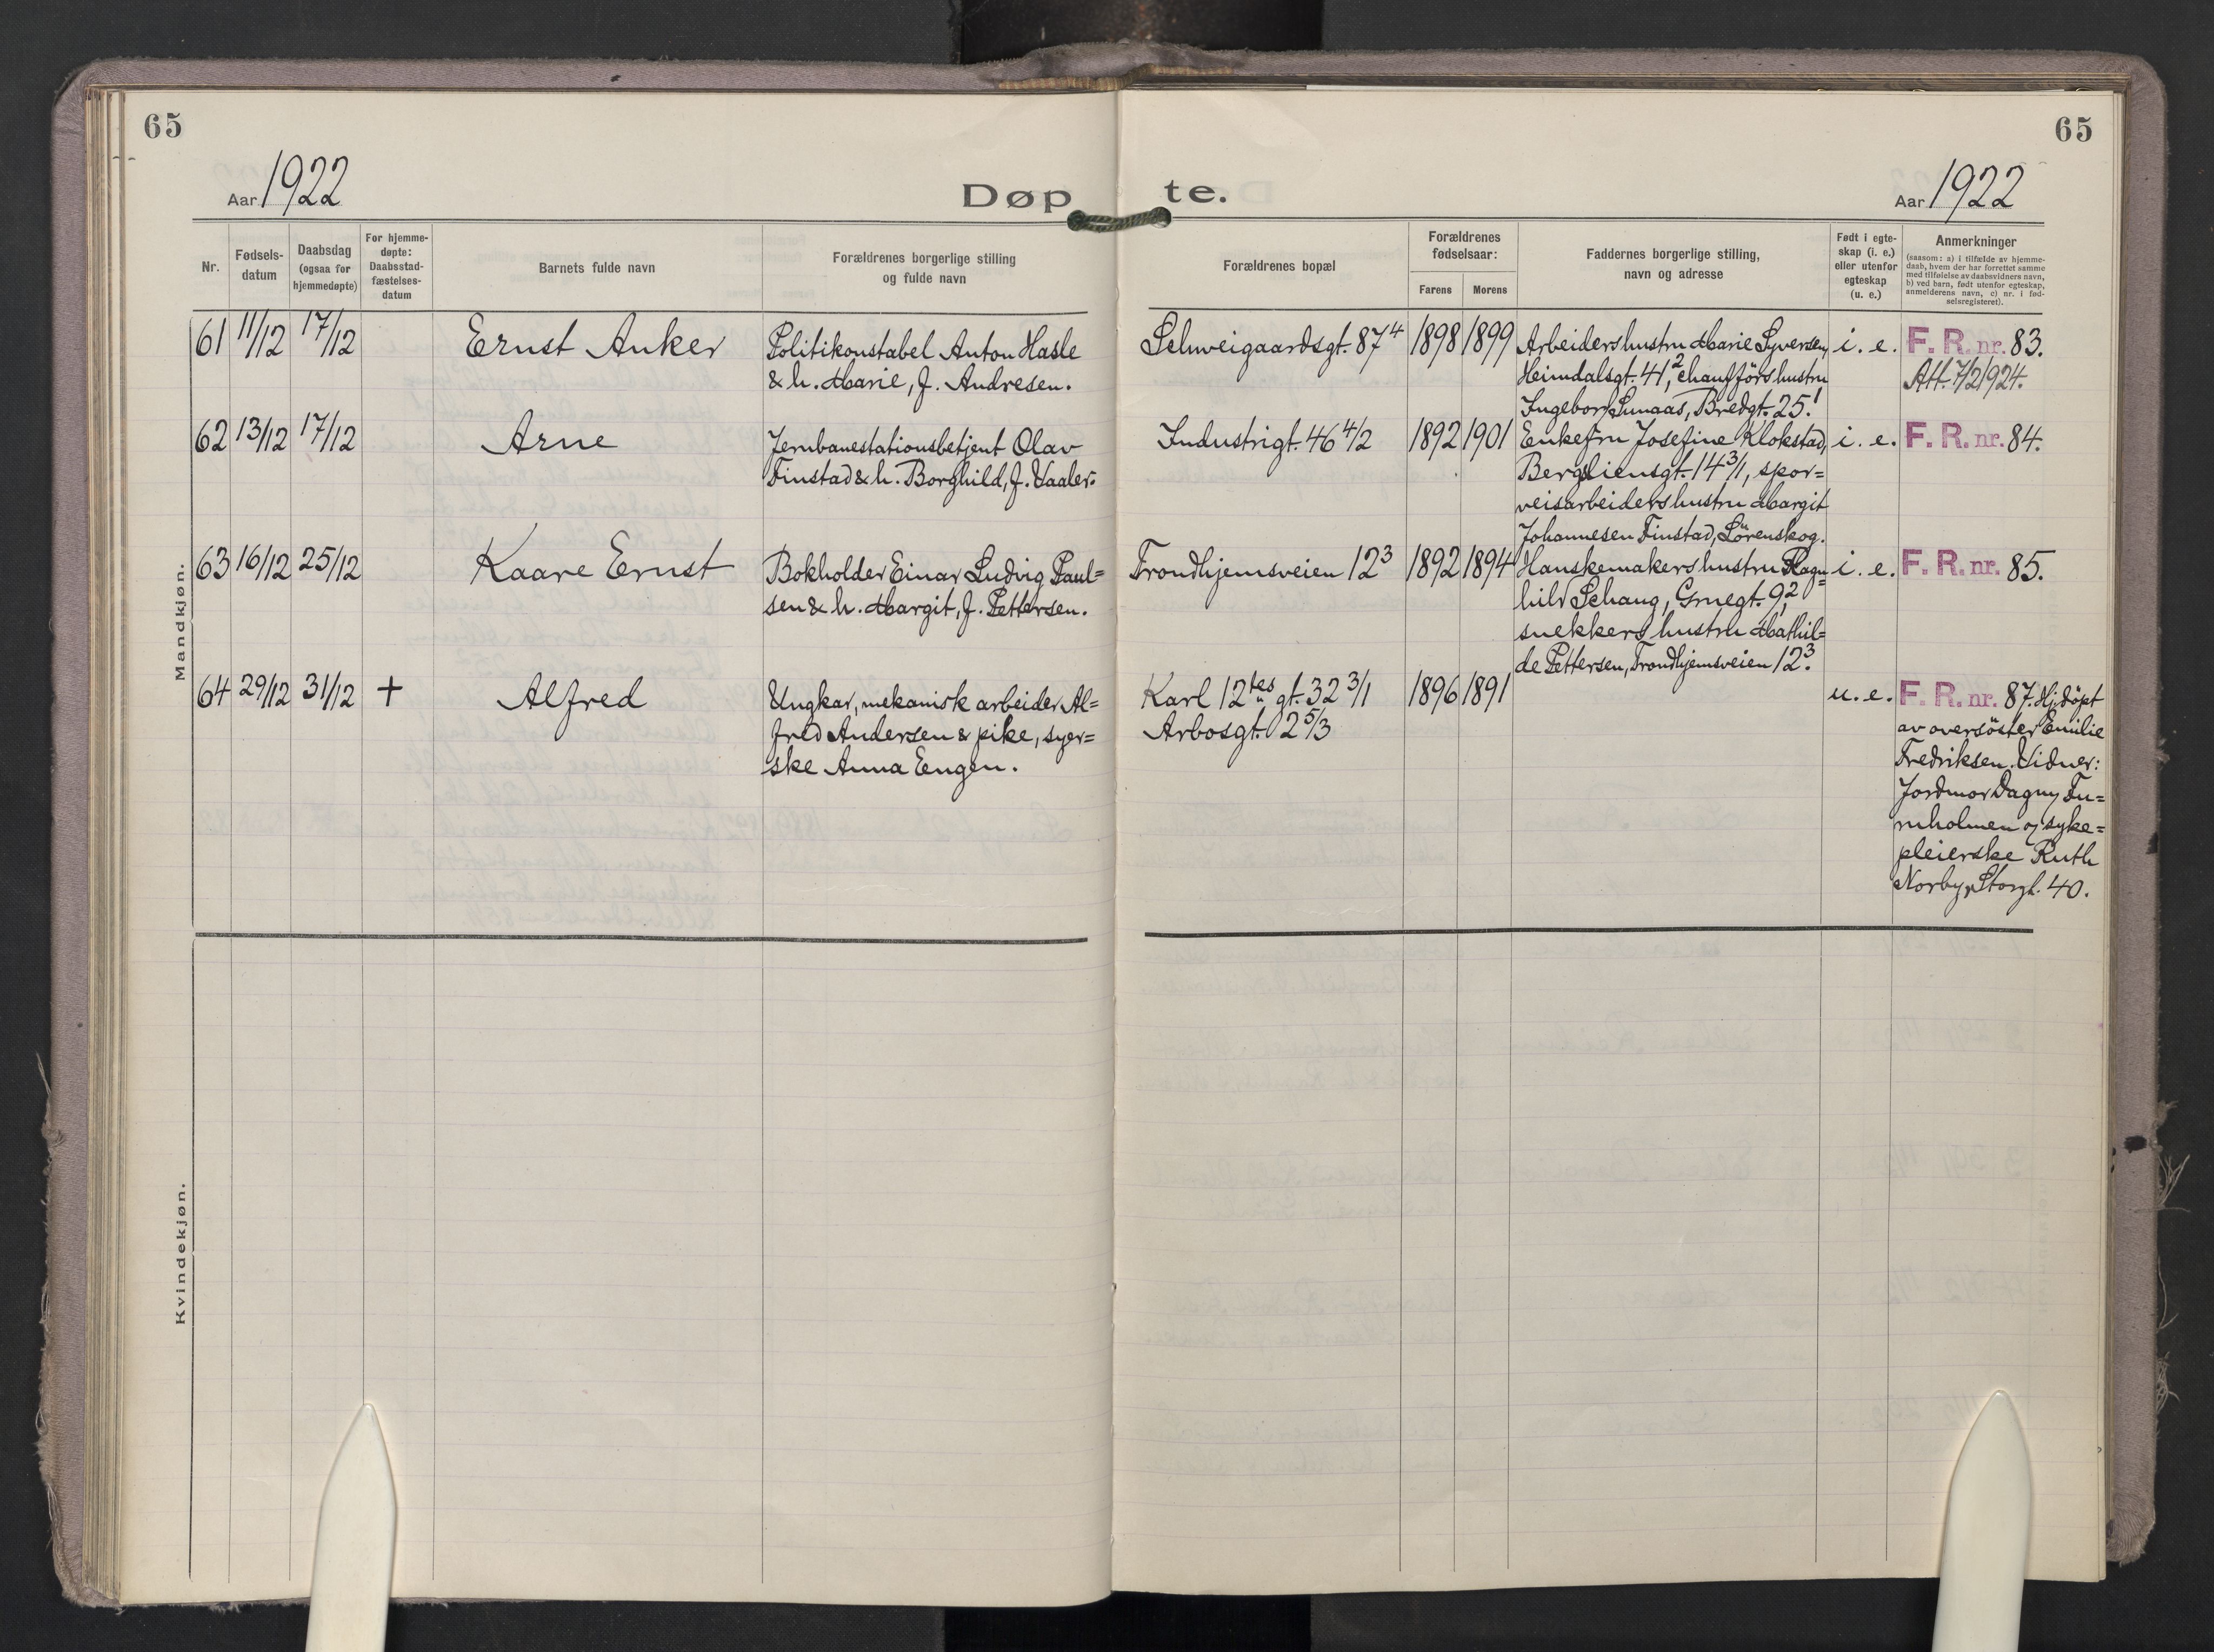 65
65
Aar 1922
Døpte.
Aar 1922
Nr.
Fødsels-
datum
Daabsdag
(ogsaa for
hjemmedøpte)
For hjemme-
døpte:
Daabsstad-
fæstelses-
datum
Barnets fulde navn
Forældrenes borgerlige stilling
og fulde navn
Forældrenes bopæl
Forældrenes
fødselsaar:
Farens
Morens
Faddernes borgerlige stilling,
navn og adresse
Født i egte-
skap (i. e.)
eller utenfor
egteskap
(u. e.)
Anmerkninger
(saasom: a) i tilfælde av hjemme-
daab, hvem der har forrettet samme
med tilføielse av daabsvidners navn,
b) ved barn, født utenfor egteskap,
anmelderens navn, c) nr. i fød-
selsregisteret).
Mandkjøn.
61 11/12 17/12
Ernst Anker
Politikonstabel Anton Hasle
& h. Marie, f. Andresen.
Schweigaardsgt. 87⁴
1898 1899
Arbeidershustru Marie Syversen,
Heimdalsgt. 41², chaufførs hustru
Ingeborg Lunaas, Bredgt. 25¹.
i. e.
F. R. nr. 83.
Att. 7/2 1924.
62 13/12 17/12
Arne
Jernbanestationsbetjent Olav
Finstad & h. Borghild, f. Vaaler.
Industrigt. 46 4/2
1892 1901
Enkefru Josefine Klokstad,
Bergsliensgt. 14 3/1, spor=
veisarbeiders hustru Margit
Johannesen Finstad, Lörenskog.
i. e.
F. R. nr. 84.
63 16/12 25/12
Kaare Ernst
Bokholder Einar Ludvig Paul=
sen & h. Margit, f. Pettersen.
Trondhjemsveien 12³
1892 1894
Hanskemakers hustru Ragn=
hild Schang, Gruegt. 9²,
snekkers hustru Mathil=
de Pettersen, Trondhjemsveien 12³.
i. e.
F. R. nr. 85.
64 29/12 31/12 +
Alfred
Ungkar, mekanisk arbeider Al=
fred Andersen & pike, syer=
ske Anna Engen.
Karl 12tes gt. 32 3/1
Arbosgt. 2 5/3
1896 1891
u. e.
F. R. nr. 87. Hj. döpt
av oversöster Emilie
Fredriksen. Vidner:
Jordmor Dagny Fu=
ruholmen og syke=
pleierske Ruth
Norby, Storgt. 40.
Kvindekjøn.